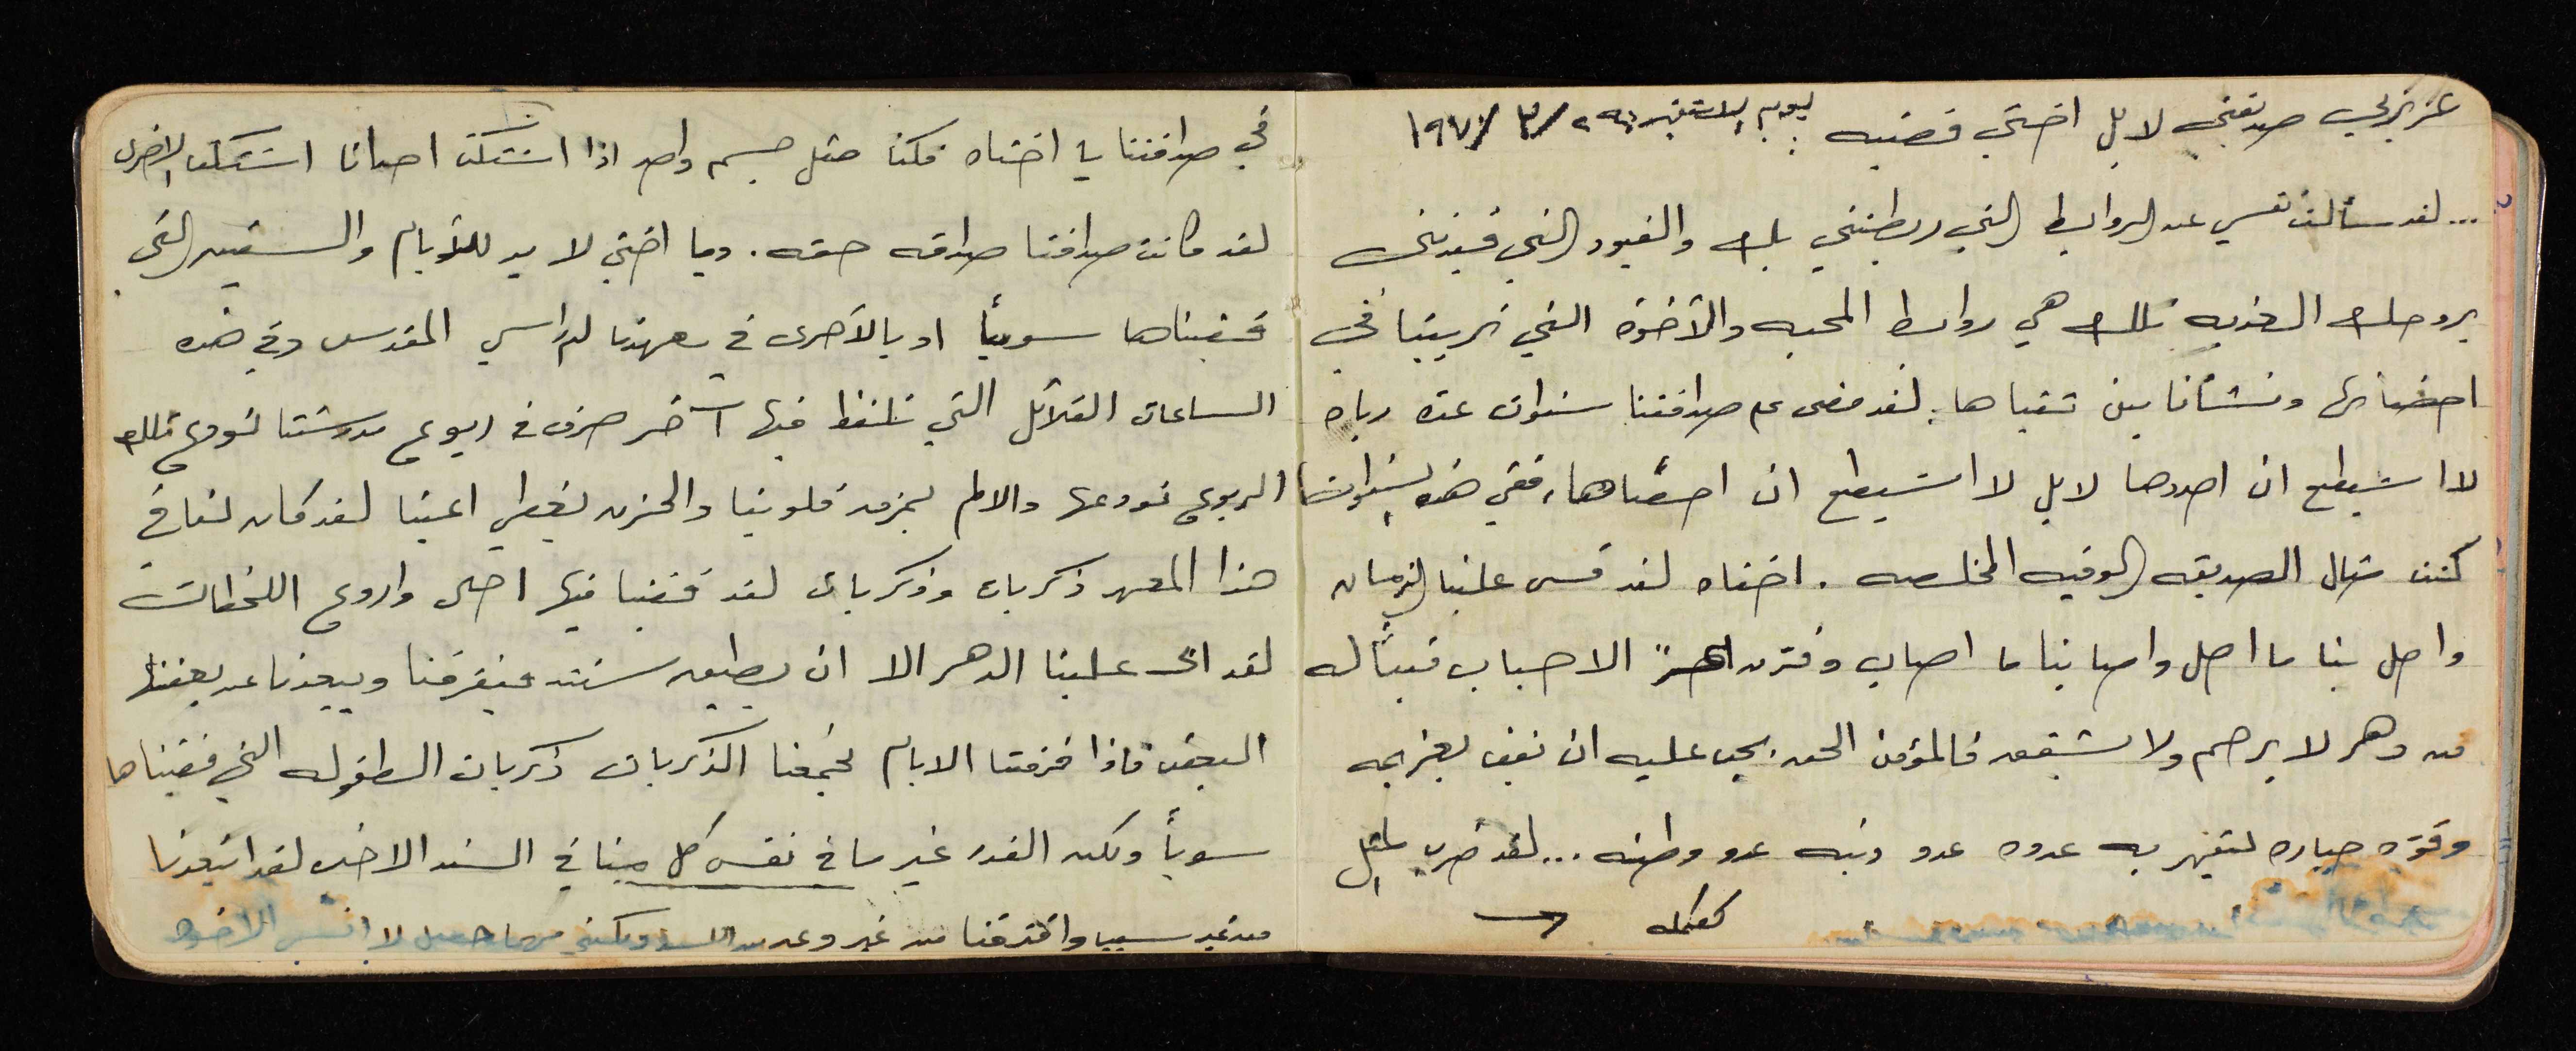 عزيزتي صديقتي لا بل اختي فضيه : يوم الاثنين ٢/٣/١٩٧٠
... لقد سألت نفسي عن الروابط التي ربطتني بك والقيود التي قيدتني
بروحك العذبه تلك هي روابط المحبه والأخوة التي تربينا في
احضانها ونشأنا بين ثناياها. لقد مضى على صداقتنا سنوات عده رباه
لا استطيع ان احددها لا بل لا استيطع ان احصاها، ففي هذه السنوات
كنت مثال الصديقه الوفيه المخلصه. اختاه لقد قسى علينا الزمان
واحل بنا ما احل واصابنا ما اصاب وفرق الاحباب فتباً له
من دهر لا يرحم ولا يشفق فالمؤمن الحق يجب عليه ان يقف بعزيمه
وقوه جباره ليقهر به عدوه عدو دينه عدو وطنه ... لقد ضرب المثل
كمله ←
في صداقتنا يا اختاه فكنا مثل جسم واحد اذا اشتكت احدانا اشتكت الاخرى
لقد كانت صداقتنا صداقه حقه. ويا اختي لا بد للأيام والسنين التي
قضيناها سوياً او بالأحرى في معهدنا الدراسي المقدس وفي هذه
الساعات القلائل التي نلفظ فيها آخر حرف في ربوع مدرستنا نودع تلك
الربوع نودعها والالم يمزق قلوبنا والحزن يغطي اعيننا لقد كان لنا في
هذا المعهد ذكريات وذكريات لقد قضينا فيها احلى واروع اللحظات
لقد ابى علينا الدهر الا ان يطبق سنته فيفرقنا ويبعدنا عن بعضنا
البعض فاذا فرقتنا الايام تجمعنا الذكريات ذكريات الطفوله التي قضيناها
سوياً ولكن القدر غير ما في نفس كل منا في السنه الاخيره لقد ابتعدنا
من غير سبب وافترقنا من غير وعد ولكني مهما حصل لا انسى الاخوه